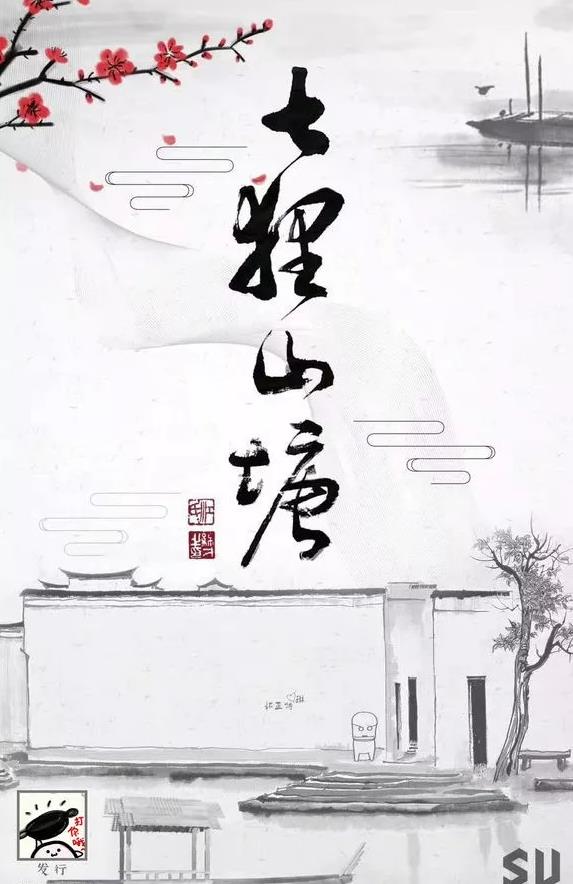 七
狸
山
塘
打你哦
发行
SU